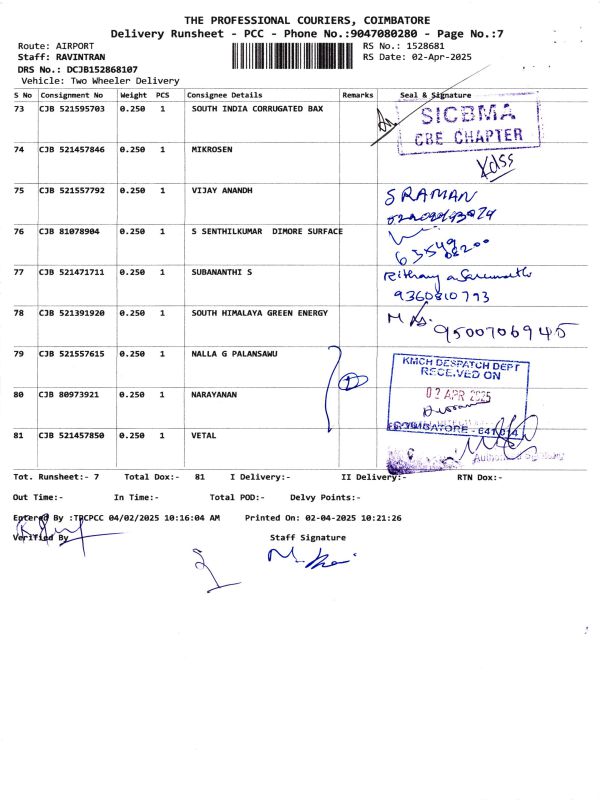 THE PROFESSIONAL COURIERS, COIMBATORE
Delivery Runsheet - PCC - Phone No.:9047080280 - Page No.:7
Route: AIRPORT RS No.: 1528681
Staff: RAVINTRAN RS Date: 02-Apr-2025
DRS No.: DCJB152868107
Vehicle: Two Wheeler Delivery
S No Consignment No Weight PCS Consignee Details Remarks Seal & Signature
73 CJB 521595703 0.250 1 SOUTH INDIA CORRUGATED BAX
SICBMA
CBE CHAPTER
74 CJB 521457846 0.250 1 MIKROSEN
75 CJB 521557792 0.250 1 VIJAY ANANDH SRAMAN
76 CJB 81078904 0.250 1 S SENTHILKUMAR DIMORE SURFACE
77 CJB 521471711 0.250 1 SUBANANTHI S
9360810793
78 CJB 521391920 0.250 1 SOUTH HIMALAYA GREEN ENERGY
9500706945
79 CJB 521557615 0.250 1 NALLA G PALANSAWU
KMCH DESPATCH DEPT
RECEIVED ON
02 APR 2025
80 CJB 80973921 0.250 1 NARAYANAN
COIMBATORE - 641 014
81 CJB 521457850 0.250 1 VETAL
Authorised Signatory
Tot. Runsheet:- 7 Total Dox:- 81 I Delivery:- II Delivery:- RTN Dox:-
Out Time:- In Time:- Total POD:- Delvy Points:-
Entered By :TPCPCC 04/02/2025 10:16:04 AM Printed On: 02-04-2025 10:21:26
Verified By Staff Signature